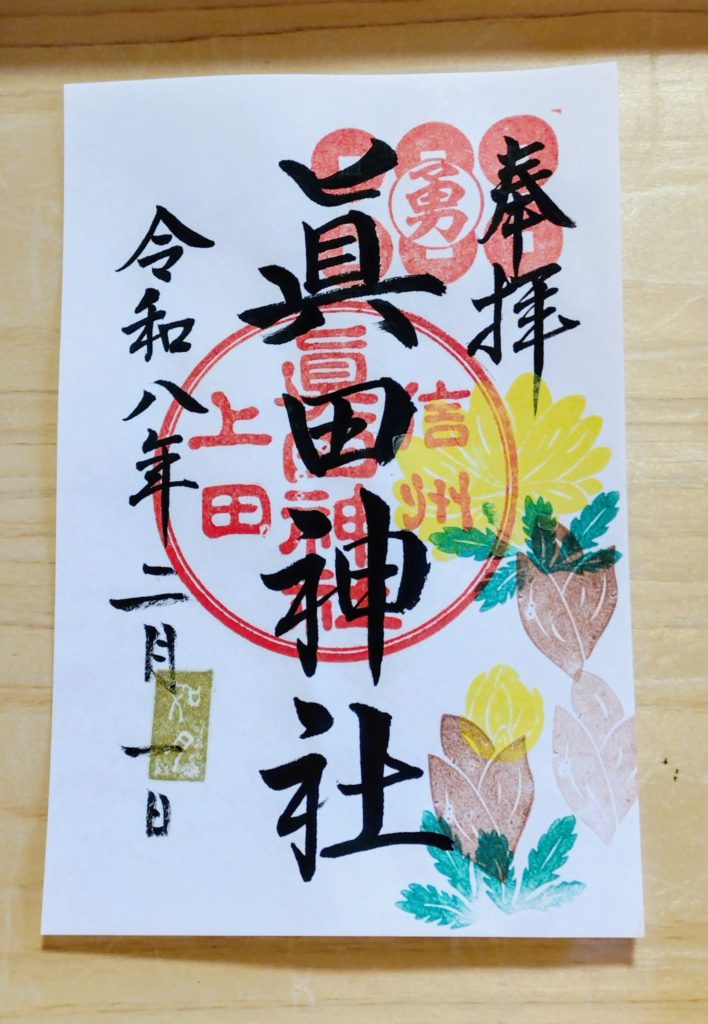 奉拝
勇
信州
眞田神社
眞田神社
上田
令和八年二月一日